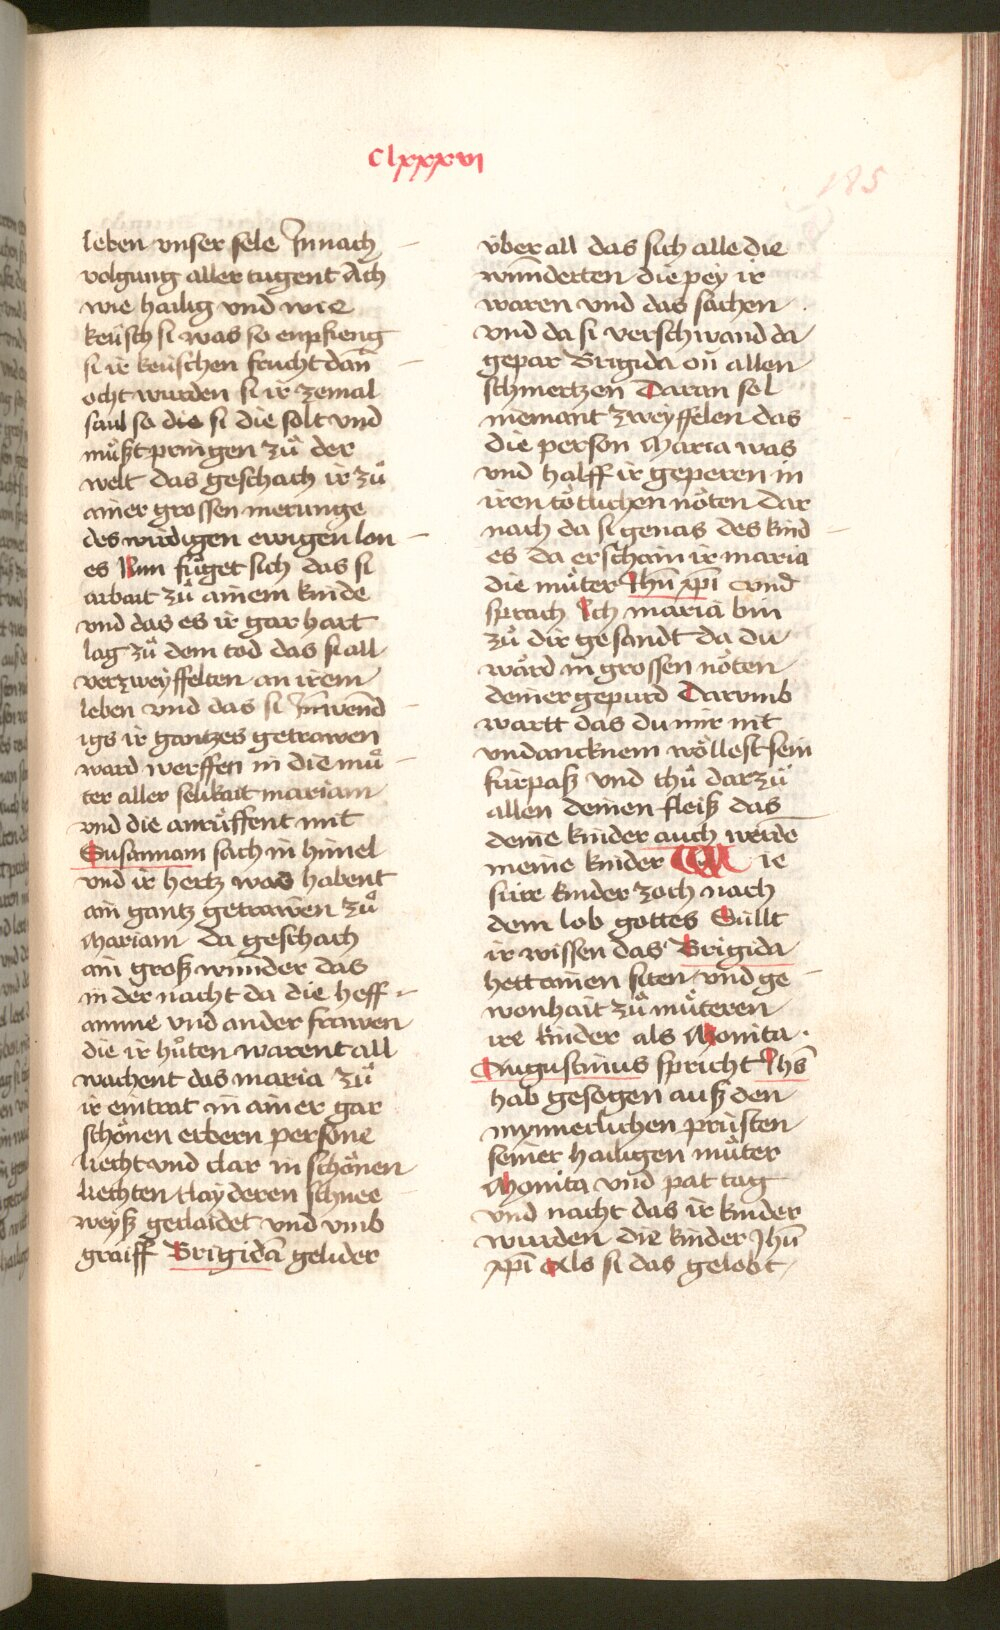 Clxxxvi
185
leben vnser sele Jnnach
volgung aller tugent Ach
wie hailig vnd wie
keüsch si was so enpfieng
si ir keüschen frucht dan̄
ocht wurden si ir zemal
saul so die si die solt vnd
muͦst pringen zuͦ der
welt das geschach ir zuͦ
ainer grossen merunge
des wirdigen ewigen lon
es Nun fuͤget sich das si
arbait zuͦ ainem kinde
vnd das es ir gar hart
lag zuͦ dem tod das si all
verzweyffelten an irem
leben vnd das si Jn̄wend
igs ir gantzes getrawen
ward werffen in die muͦ
ter aller selikait mariam
vnd die anruͤffent mit
Susannam sach in himel
vnd ir hertz was habent
ain gantz getrawen zuͦ
Mariam da geschach
ain groß wunder das
in der nacht da die heff
amme vnd ander frawen
die ir huͦten warent all
wachent das maria zuͦ
ir eintrat in ainer gar
schoͤnen erbern persone
liecht vnd clar in schoͤnen
liechten clayderen schnee
weyß geclaidet vnd vmb
graiff Brigidā gelider
über all das sich alle die
wunderten die pey ir
waren vnd das sachen
vnd da si verschwand da
gepar Brigida on̄ allen
schmertzen Daran sol
niemant zweyffelen das
die person Maria was
vnd halff ir geperen in
iren toͤtlichen noͤten Dar
nach da si genas des kind
es da erschain ir maria
die muͦter Jhū xp̄i vnd
sprach Ich maria bin
zuͦ dir gesandt da du
waͤrd in grossen noͤten
deiner gepurd Darumb
wartt das du mir nit
vndancknem woͤllest sein
fürpaß vnd thuͦ darzuͦ
allen deinen fleiß das
deine kinder auch werdē
meine kinder Wie
sie ir kinder zoch nach
dem lob gottes Süllt
ir wissen das Brigida
hett ainen siten vnd ge
wonhait zuͦ muͤteren
ire kinder als Monita
Augustinus spricht Jhs̄
hab gesogen auß den
mynnerlichen prüsten
seiner hailigen muͦter
Monita vnd pat tag
vnd nacht das ir kinder
wurden die kinder Jhū
xp̄i Als si das gelobt